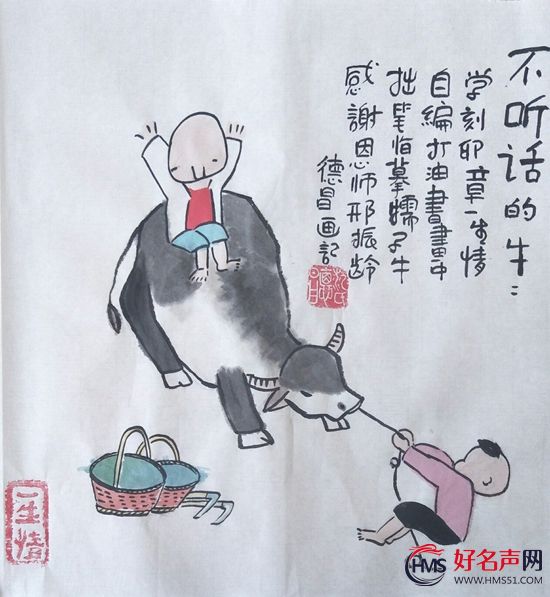 不听话的牛：
学刻印章一生情
自编打油书畫中
拙笔临摹孺子牛
感謝恩师邢振龄
德昌画記
一生情
HMS
好名声网
WWW.HMS51.COM